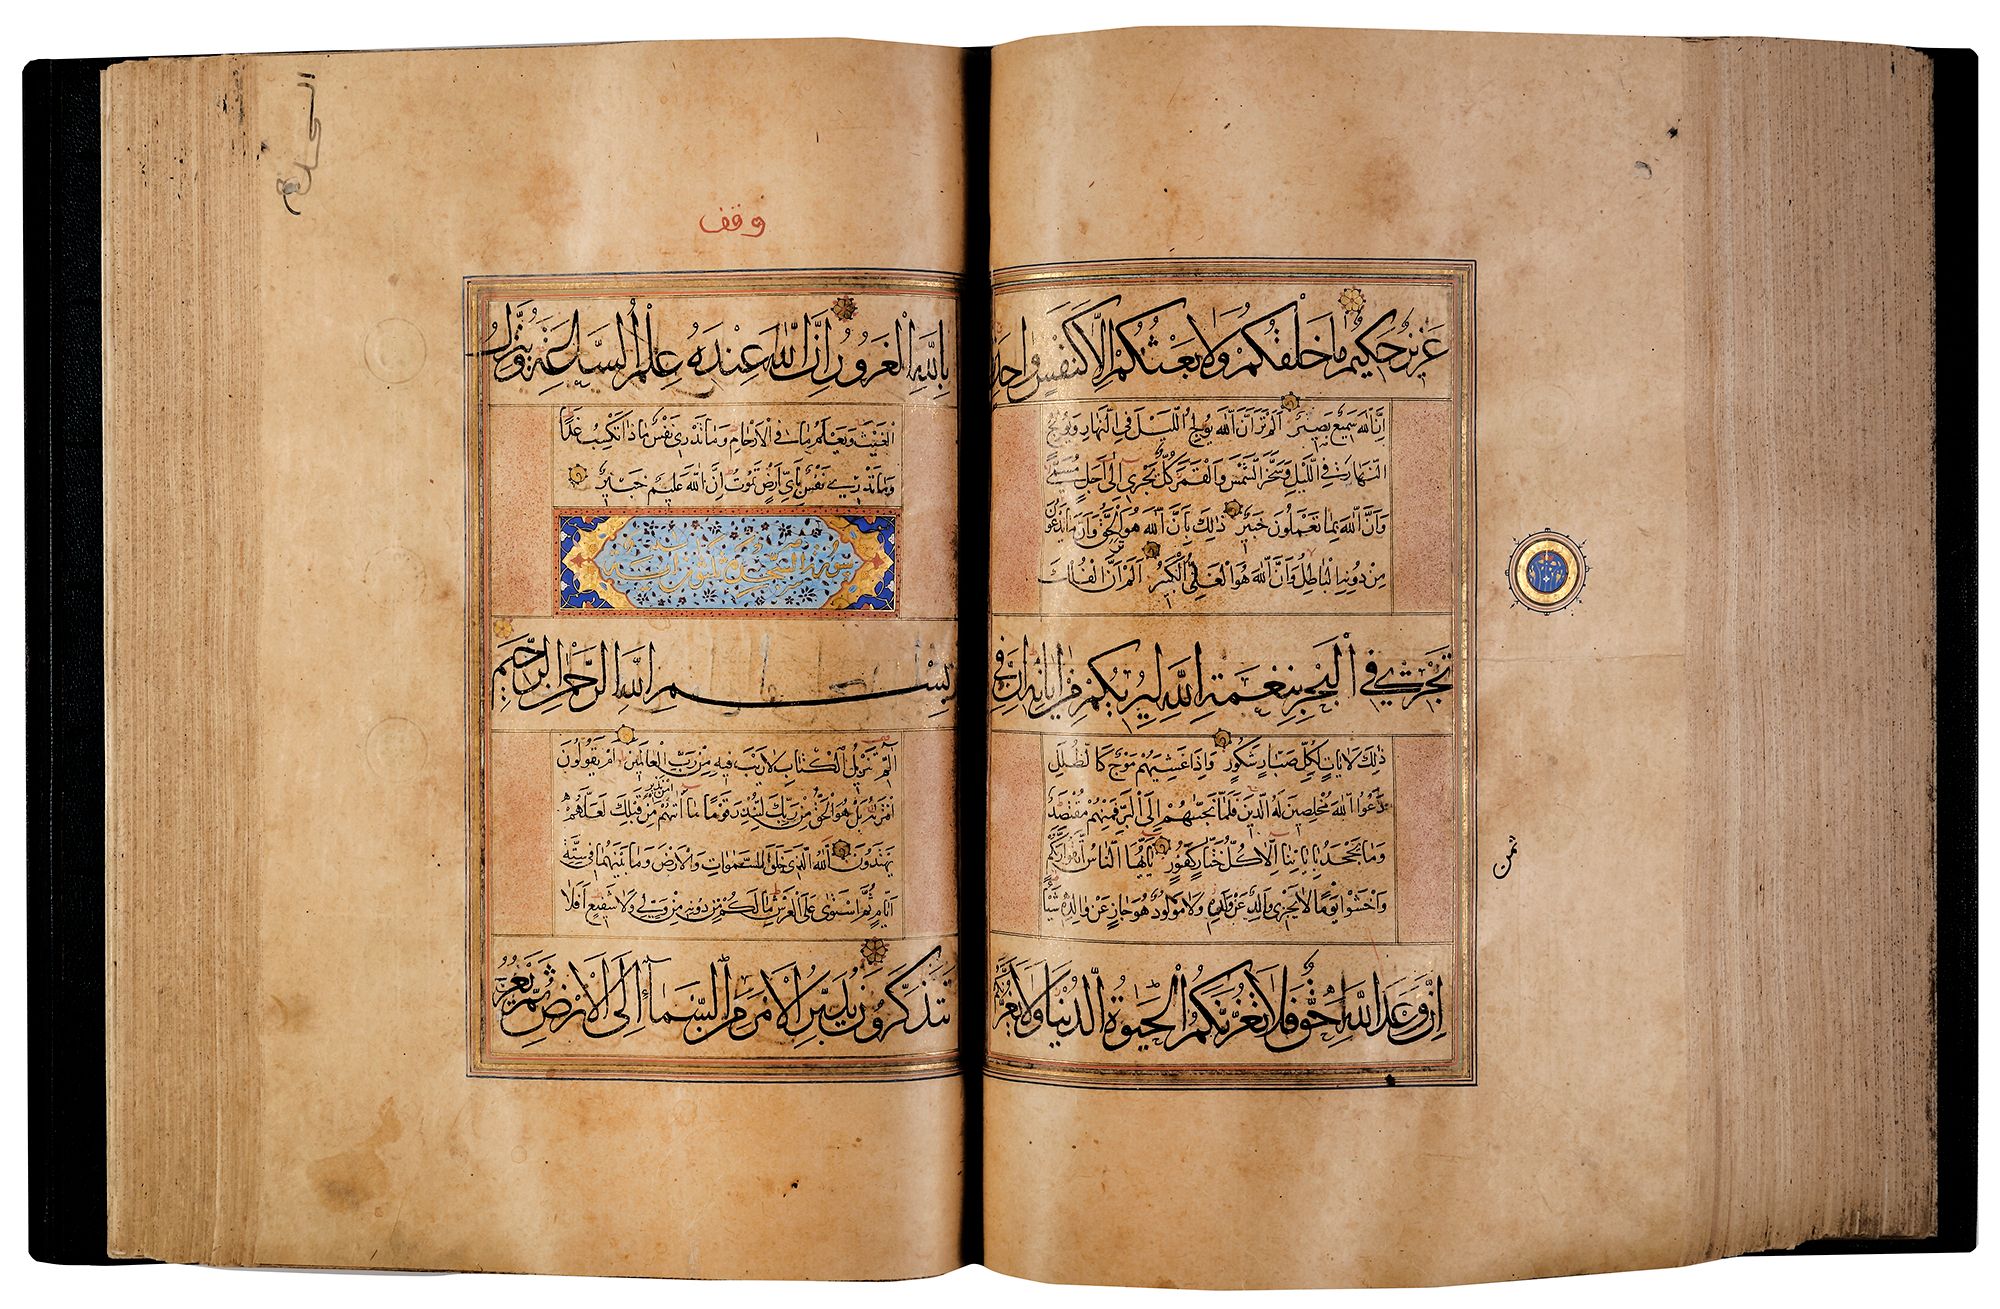 عَزِيزٌ حَكِيمٌ مَا خَلْقُكُمْ وَلَا بَعْثُكُمْ إِلَّا كَنَفْسٍ وَاحِدَةٍ
إِنَّ اللَّهَ سَمِيعٌ بَصِيرٌ أَلَمْ تَرَ أَنَّ اللَّهَ يُولِجُ اللَّيْلَ فِي النَّهَارِ وَيُولِجُ
النَّهَارَ فِي اللَّيْلِ وَسَخَّرَ الشَّمْسَ وَالْقَمَرَ كُلٌّ يَجْرِي إِلَى أَجَلٍ مُسَمًّى
وَأَنَّ اللَّهَ بِمَا تَعْمَلُونَ خَبِيرٌ ذَلِكَ بِأَنَّ اللَّهَ هُوَ الْحَقُّ وَأَنَّ مَا يَدْعُونَ
مِنْ دُونِهِ الْبَاطِلُ وَأَنَّ اللَّهَ هُوَ الْعَلِيُّ الْكَبِيرُ أَلَمْ تَرَ أَنَّ الْفُلْكَ
تَجْرِي فِي الْبَحْرِ بِنِعْمَةِ اللَّهِ لِيُرِيَكُمْ مِنْ آيَاتِهِ إِنَّ فِي
ذَلِكَ لَآيَاتٍ لِكُلِّ صَبَّارٍ شَكُورٍ وَإِذَا غَشِيَهُمْ مَوْجٌ كَالظُّلَلِ
دَعَوُا اللَّهَ مُخْلِصِينَ لَهُ الدِّينَ فَلَمَّا نَجَّاهُمْ إِلَى الْبَرِّ فَمِنْهُمْ مُقْتَصِدٌ
وَمَا يَجْحَدُ بِآيَاتِنَا إِلَّا كُلُّ خَتَّارٍ كَفُورٍ يَا أَيُّهَا النَّاسُ اتَّقُوا رَبَّكُمْ
وَاخْشَوْا يَوْمًا لَا يَجْزِي وَالِدٌ عَنْ وَلَدِهِ وَلَا مَوْلُودٌ هُوَ جَازٍ عَنْ وَالِدِهِ شَيْئًا
إِنَّ وَعْدَ اللَّهِ حَقٌّ فَلَا تَغُرَّنَّكُمُ الْحَيَوةُ الدُّنْيَا وَلَا يَغُرَّنَّكُمْ
وقف
بِاللَّهِ الْغَرُورُ إِنَّ اللَّهَ عِنْدَهُ عِلْمُ السَّاعَةِ وَيُنَزِّلُ
الْغَيْثَ وَيَعْلَمُ مَا فِي الْأَرْحَامِ وَمَا تَدْرِي نَفْسٌ مَاذَا تَكْسِبُ غَدًا
وَمَا تَدْرِي نَفْسٌ بِأَيِّ أَرْضٍ تَمُوتُ إِنَّ اللَّهَ عَلِيمٌ خَبِيرٌ
سورة السجدة ثلثون آية
بِسْمِ اللَّهِ الرَّحْمَنِ الرَّحِيمِ
الم تَنْزِيلُ الْكِتَابِ لَا رَيْبَ فِيهِ مِنْ رَبِّ الْعَالَمِينَ أَمْ يَقُولُونَ
افْتَرَاهُ بَلْ هُوَ الْحَقُّ مِنْ رَبِّكَ لِتُنْذِرَ قَوْمًا مَا أَتَاهُمْ مِنْ نَذِيرٍ مِنْ قَبْلِكَ لَعَلَّهُمْ
يَهْتَدُونَ اللَّهُ الَّذِي خَلَقَ السَّمَاوَاتِ وَالْأَرْضَ وَمَا بَيْنَهُمَا فِي سِتَّةِ
أَيَّامٍ ثُمَّ اسْتَوَى عَلَى الْعَرْشِ مَا لَكُمْ مِنْ دُونِهِ مِنْ وَلِيٍّ وَلَا شَفِيعٍ أَفَلَا
تَتَذَكَّرُونَ يُدَبِّرُ الْأَمْرَ مِنَ السَّمَاءِ إِلَى الْأَرْضِ ثُمَّ يَعْرُجُ